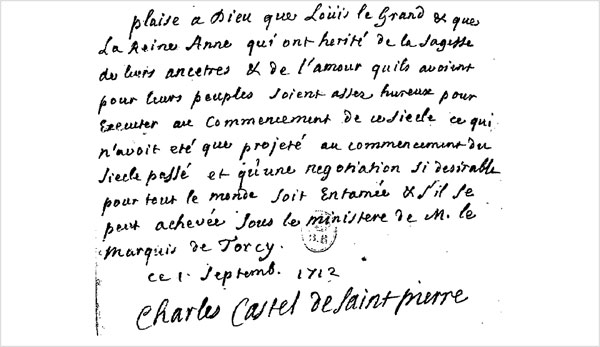 plaise a Dieu que Louis le Grand & que
La Reine Anne qui ont herité de la sagesse
de leurs ancetres & de l'amour quils avoient
pour leurs peuples soient assez hureux pour
Executer au Commencement de ce siecle ce qui
n'avoit eté que projeté au commencement du
siecle passé et qu'une negotiation si desirable
pour tout le monde soit Entamée & s'il se
peut achevée sous le ministere de M. le
Marquis de Torcy.
ce 1. Septemb. 1712
Charles Castel de Saint pierre